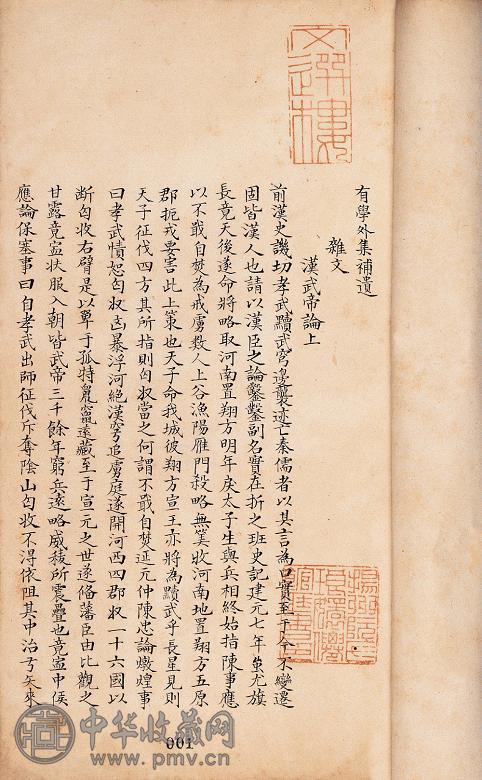 文選樓
有學外集補遺
雜文
漢武帝論上
前漢史譏切孝武黷武窮邊襲迹亡秦儒者以其言為口實至于今不變遷
固皆漢人也請以漢臣之論鑿鑿副名實在折之班史記建元七年蚩尤旗
長竟天後遂命將略取河南置翔方明年戾太子生與兵相終始指陳事應
以不戢自焚為戒虜殺人上谷漁陽雁門殺略無筭收河南地置翔方五原
郡扼戎要害此上策也天子命我城彼翔方宣王亦將為黷武乎長星見則
天子征伐四方其所指則匈奴當之何謂不戢自焚延元仲陳忠論燉煌事
曰孝武憤恕匈奴凶暴浮河絕漢窮追虜庭遂開河西四郡収一十六國以
断匈收右臂是以單于孤特鼠竄遠藏至于宣元之世遂俻藩臣由比觀之
甘露竟寍欵服入朝皆武帝三千餘年窮兵遠略威稜所震疊也竟寍中侯
應論保塞事曰自孝武出師征伐斥奪陰山匈收不得依阻其中治亏矢來
001
中华收藏网
www.pmv.cn